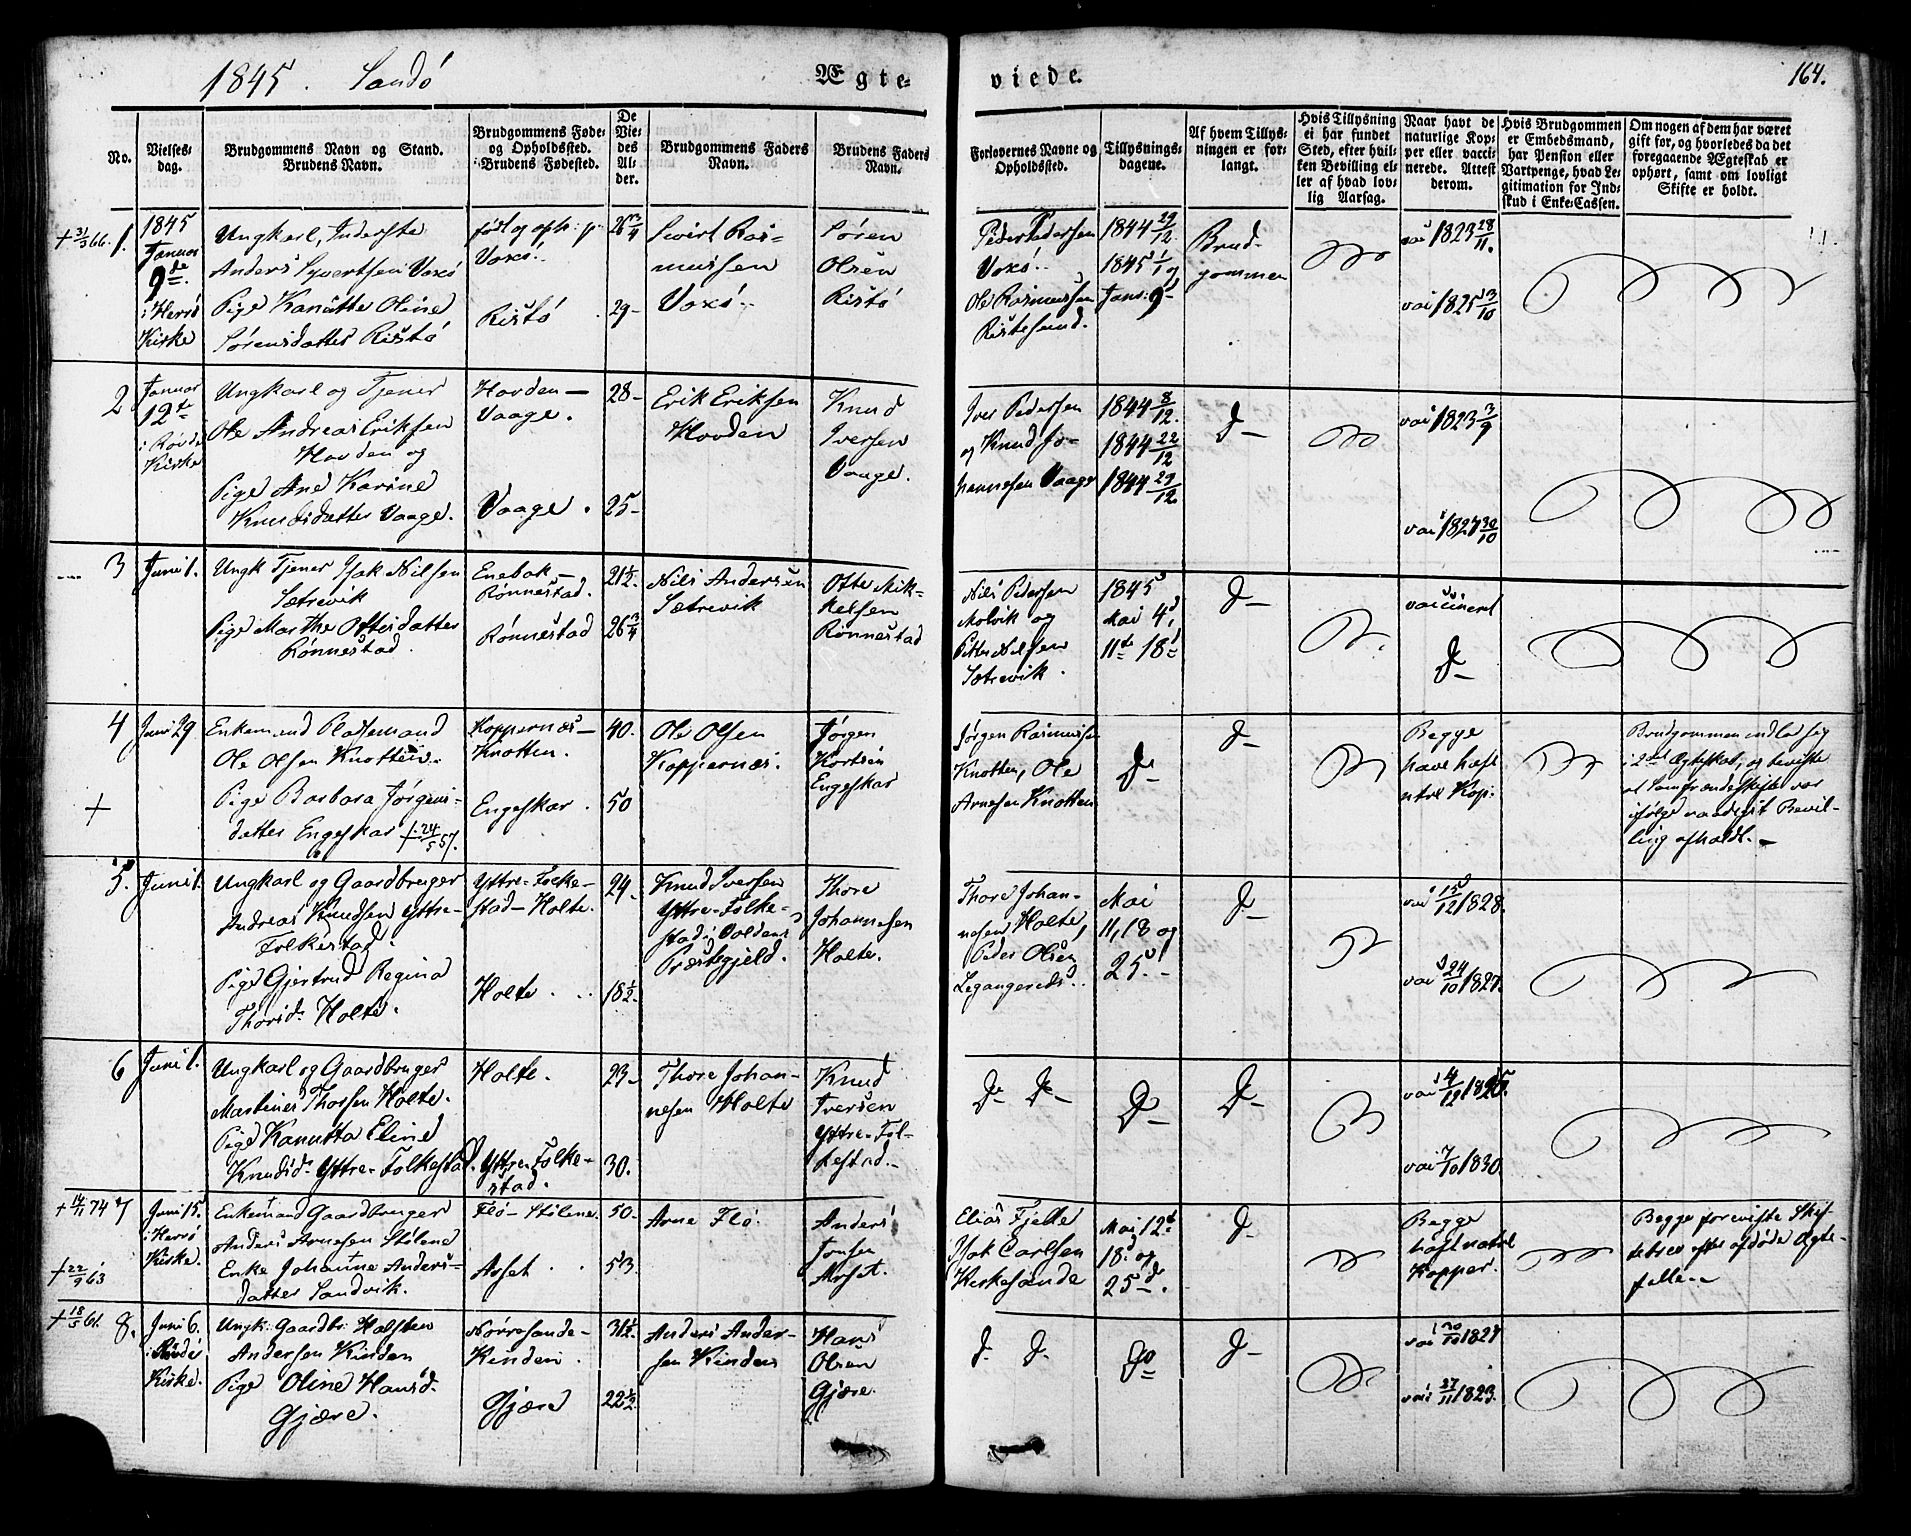 1845. Sandø
Ægte-
viede.
164.
No.
Vielses-
dag.
Brudgommens Navn og Stand.
Brudens Navn.
Brudgommens Føde-
og Opholdssted.
Brudens Fødested.
De
Vie-
des
Al-
der.
Brudgommens Faders
Navn.
Brudens Faders
Navn.
Forlovernes Navne og
Opholdssted.
Tillysnings-
dagene.
Af hvem Tillys-
ningen er for-
langt.
Hvis Tillysning
ei har fundet
Sted, efter hvil-
ken Bevilling el-
ler af hvad lov-
lig Aarsag.
Naar havt de
naturlige Kop-
per eller vacci-
nerede. Attest
derom.
Hvis Brudgommen
er Embedsmand,
har Pension eller
Vartpenge, hvad Le-
gitimation for Ind-
skud i Enke-Cassen.
Om nogen af dem har været
gift før, og hvorledes da det
foregaaende Ægteskab er
ophørt, samt om lovligt
Skifte er holdt.
+ 31/3 66. 1.
1845
Januar
9de
i Herrø
Kirke
Ungkarl, Inderste
Anders Syvertsen Voxø
Pige Kanutte Oline
Sørensdatter Ristø
født og oph: p.
Voxø.
Ristø
26 3/4
29-
Sivert Ras-
mussen
Voxø.
Søren
Olsen
Ristø
Peder Pedersen
Voxø.
Ole Rasmussen
Ristesund.
1844 29/12.
1845 1/1 og
Janr: 9d
Brud-
gommen
vai 1823 28/11.
vai 1825 13/10
2
Januar
12te
i Røvde
Kirke
Ungkarl og Tjener
Ole Andreas Eriksen
Hovden og
Pige Ane Karine
Knudsdatter Vaage.
Hovden -
Vaage.
Vaage.
28-
25-
Erik Eriksen
Hovden
Knud
Iversen
Vaage.
Iver Pedersen
og Knud Jo-
hannesen Vaage
1844 8/12.
1844 22/12
1844 29/12.
D-
vai 1823 3/9
vai 1827 30/10
3
Juni 1.
Ungk Tjener Isak Nilsen
Sætrevik
Pige Marthe Ottesdatter
Rønnestad.
Enebak -
Rønnestad.
Rønnestad
21 1/2.
26 3/4
Nils Andersen
Sætrevik
Otte Mik-
kelsen
Rønnestad
Nils Pedersen
Molvik og
Petter Nilsen
Sætrevik.
1845
Mai 4d,
11te 18d
D-
vaccineret
D-
4
Juni 29
Enkemand Pladsemand
Ole Olsen Knotten.
Pige Barbara Jørgens-
datter Engeskar + 24/5 57.
+
Koppernæs -
Knotten.
Engeskar.
40.
50
Ole Olsen
Koppernæs.
Jørgen
Kortsen
Engeskar
Jørgen Rasmussen
Knotten, Ole
Arnesen Knotten
D-
D-
Begge
have havt
ntrl Kop.
Brudgommen indlod sig
i 2det Ægteskab, og beviste
at Samfrændeskifte var
ifølge naadigst Bevil-
ling afholdt.-
5.
Juni 1.
Ungkarl og Gaardbruger
Andreas Knudsen Yttre-
Folkestad.
Pige Gjertrud Regina
Thorsd: Holte.
Yttre-Folke-
stad - Holte.
Holte.
24
18 1/2.
Knud Iversen
Yttre-Folke-
stad i Voldens
Præstegjeld.
Thore
Johannesen
Holte.
Thore Johan-
nesen Holte,
Peder Olsen
Leganger
Mai
11, 18 og
25d.-
D-
vai 15/12 1828.
vai 24/10 1827.
6
Juni 1.
Ungkarl og Gaardbruger
Martines Thorsen Holte.
Pige Kanutta Eline
Knudsd: Yttre-Folkestad.
Holte.
Yttre-Folke-
stad.
23-
30.
Thore Johan-
nesen Holte
Knud
Iversen
Yttre-Fol-
kestad.-
D- D-
D-
D-
vai 4/12
vai 7/10 1830.
+ 14/11 74 7
+ 22/9 63
Juni 15.
i Herrø
Kirke.
Enkemand Gaardbruger
Anders Arnesen Stølene
Enke Johanne Anders-
datter Sandvik.
Flø - Stølene.
Aaset
50.
53.
Arne Flø.
Anders
Jonsen
Aaset.
Elias Fjelle
Isak Carlsen
Kirkesande
Mai 12d
18d og
25d.
D-
Begge
havt natrl
Kopper.
Begge foreviste Skif-
tebrev efter afdøde Ægte-
fælle.-
+ 18/5 61. 8.
Juni 6.
i Røvde
Kirke.
Ungk: Gaardbr: Halsten
Andersen Kinden
Pige Oline Hansd.
Gjære.
Nørresande -
Kinden.
Gjære
31 1/2.
22 1/2.
Anders Ander-
sen Kinden
Hans
Olsen
Gjære.
D. D.
Do
D-
vai 20/10 1827
vai 27/11 1823.